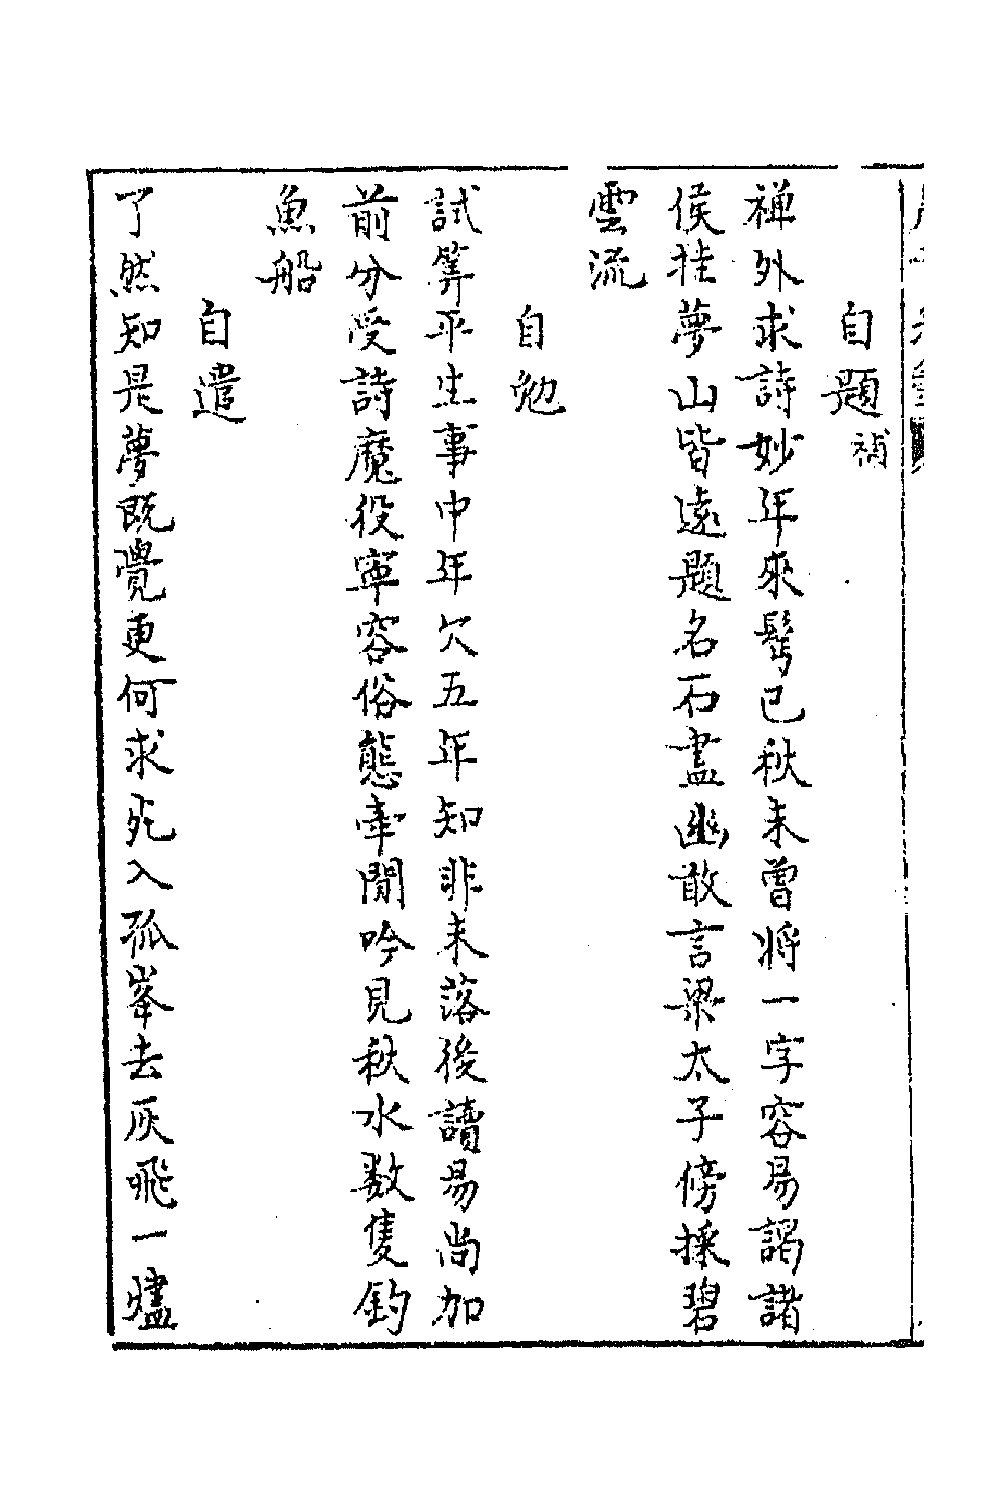 自題補
禅外求詩妙年來鬂已秋未曾將一字容易謁諸
侯挂夢山皆遠題名石盡幽敢言梁太子傍採碧
雲流
自勉
試筭平生事中年欠五年知非未落後讀易尚加
前分受詩魔役寧容俗態牽閒吟見秋水数隻釣
魚船
自遣
了然知是夢既覺更何求死入孤峯去灰飛一燼